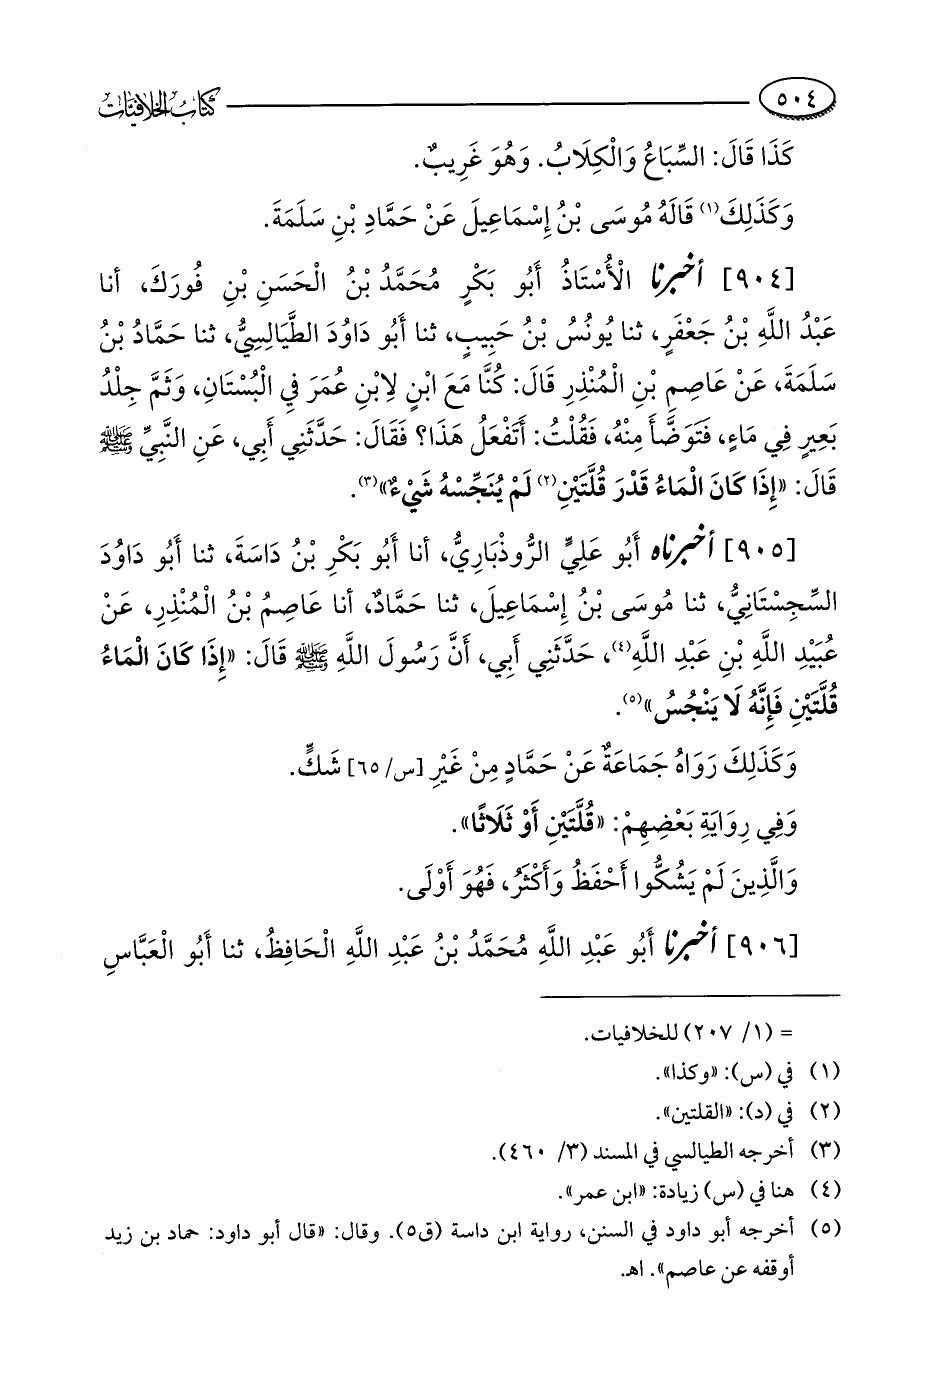 ٥٠٤ كتاب الخلافيات
كَذَا قَالَ: السِّبَاعُ وَالْكِلَابُ. وَهُوَ غَرِيبٌ.
وَكَذَلِكَ(١) قَالَهُ مُوسَى بْنُ إِسْمَاعِيلَ عَنْ حَمَّادِ بْنِ سَلَمَةَ.
[٩٠٤] أخبرنا الْأُسْتَاذُ أَبُو بَكْرٍ مُحَمَّدُ بْنُ الْحَسَنِ بْنِ فُورَكَ، أنا
عَبْدُ اللَّهِ بْنُ جَعْفَرٍ، ثنا يُونُسُ بْنُ حَبِيبٍ، ثنا أَبُو دَاوُدَ الطَّيَالِسِيُّ، ثنا حَمَّادُ بْنُ
سَلَمَةَ، عَنْ عَاصِمِ بْنِ الْمُنْذِرِ قَالَ: كُنَّا مَعَ ابْنٍ لِابْنِ عُمَرَ فِي الْبُسْتَانِ، وَثَمَّ جِلْدُ
بَعِيرٍ فِي مَاءٍ، فَتَوَضَّأَ مِنْهُ، فَقُلْتُ: أَتَفْعَلُ هَذَا؟ فَقَالَ: حَدَّثَنِي أَبِي، عَنِ النَّبِيِّ ﷺ
قَالَ: «إِذَا كَانَ الْمَاءُ قَدْرَ قُلَّتَيْنِ(٢) لَمْ يُنَجِّسْهُ شَيْءٌ»(٣).
[٩٠٥] أخبرناه أَبُو عَلِيٍّ الرُّوذْبَارِيُّ، أنا أَبُو بَكْرِ بْنُ دَاسَةَ، ثنا أَبُو دَاوُدَ
السِّجِسْتَانِيُّ، ثنا مُوسَى بْنُ إِسْمَاعِيلَ، ثنا حَمَّادٌ، أنا عَاصِمُ بْنُ الْمُنْذِرِ، عَنْ
عُبَيْدِ اللَّهِ بْنِ عَبْدِ اللَّهِ(٤)، حَدَّثَنِي أَبِي، أَنَّ رَسُولَ اللَّهِ ﷺ قَالَ: «إِذَا كَانَ الْمَاءُ
قُلَّتَيْنِ فَإِنَّهُ لَا يَنْجُسُ»(٥).
وَكَذَلِكَ رَوَاهُ جَمَاعَةٌ عَنْ حَمَّادٍ مِنْ غَيْرِ [س/ ٦٥] شَكٍّ.
وَفِي رِوَايَةِ بَعْضِهِمْ: «قُلَّتَيْنِ أَوْ ثَلَاثًا».
وَالَّذِينَ لَمْ يَشُكُّوا أَحْفَظُ وَأَكْثَرُ، فَهُوَ أَوْلَى.
[٩٠٦] أخبرنا أَبُو عَبْدِ اللَّهِ مُحَمَّدُ بْنُ عَبْدِ اللَّهِ الْحَافِظُ، ثنا أَبُو الْعَبَّاسِ
= (١/ ٢٠٧) للخلافيات.
(١) في (س): «وكذا».
(٢) في (د): «القلتين».
(٣) أخرجه الطيالسي في المسند (٣/ ٤٦٠).
(٤) هنا في (س) زيادة: «ابن عمر».
(٥) أخرجه أبو داود في السنن، رواية ابن داسة (ق٥). وقال: «قال أبو داود: حماد بن زيد
أوقفه عن عاصم». اهـ.